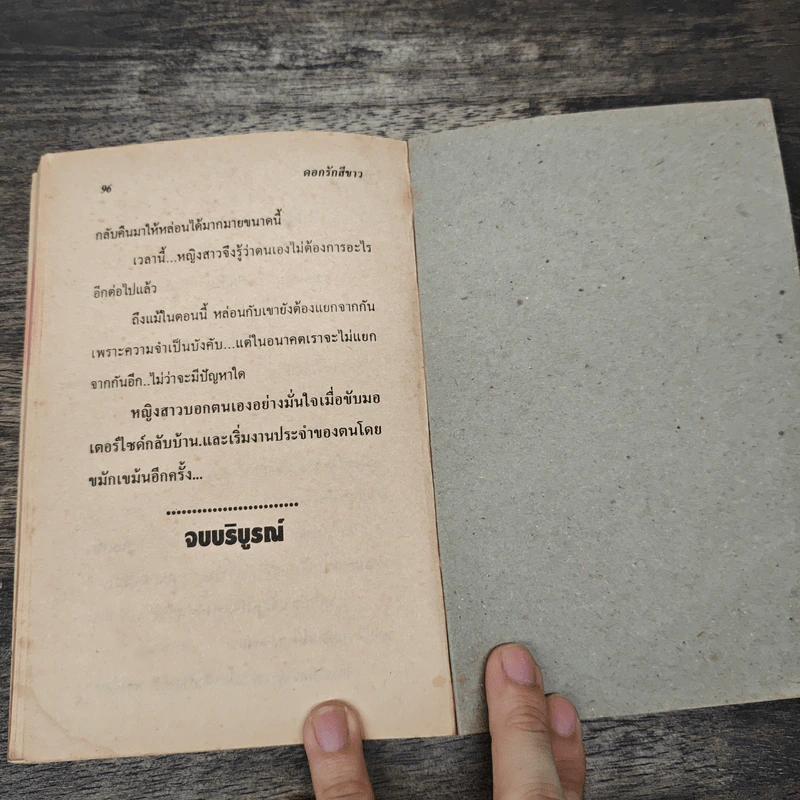 96
ดอกรักสีขาว
กลับคืนมาให้หล่อนได้มากมายขนาดนี้
เวลานี้...หญิงสาวจึงรู้ว่าตนเองไม่ต้องการอะไร
อีกต่อไปแล้ว
ถึงแม้ในตอนนี้ หล่อนกับเขายังต้องแยกจากกัน
เพราะความจำเป็นบังคับ...แต่ในอนาคตเราจะไม่แยก
จากกันอีก..ไม่ว่าจะมีปัญหาใด
หญิงสาวบอกตนเองอย่างมั่นใจเมื่อขับมอ
เตอร์ไซด์กลับบ้าน.และเริ่มงานประจำของตนโดย
ขมักเขม้นอีกครั้ง...
จบบริบูรณ์